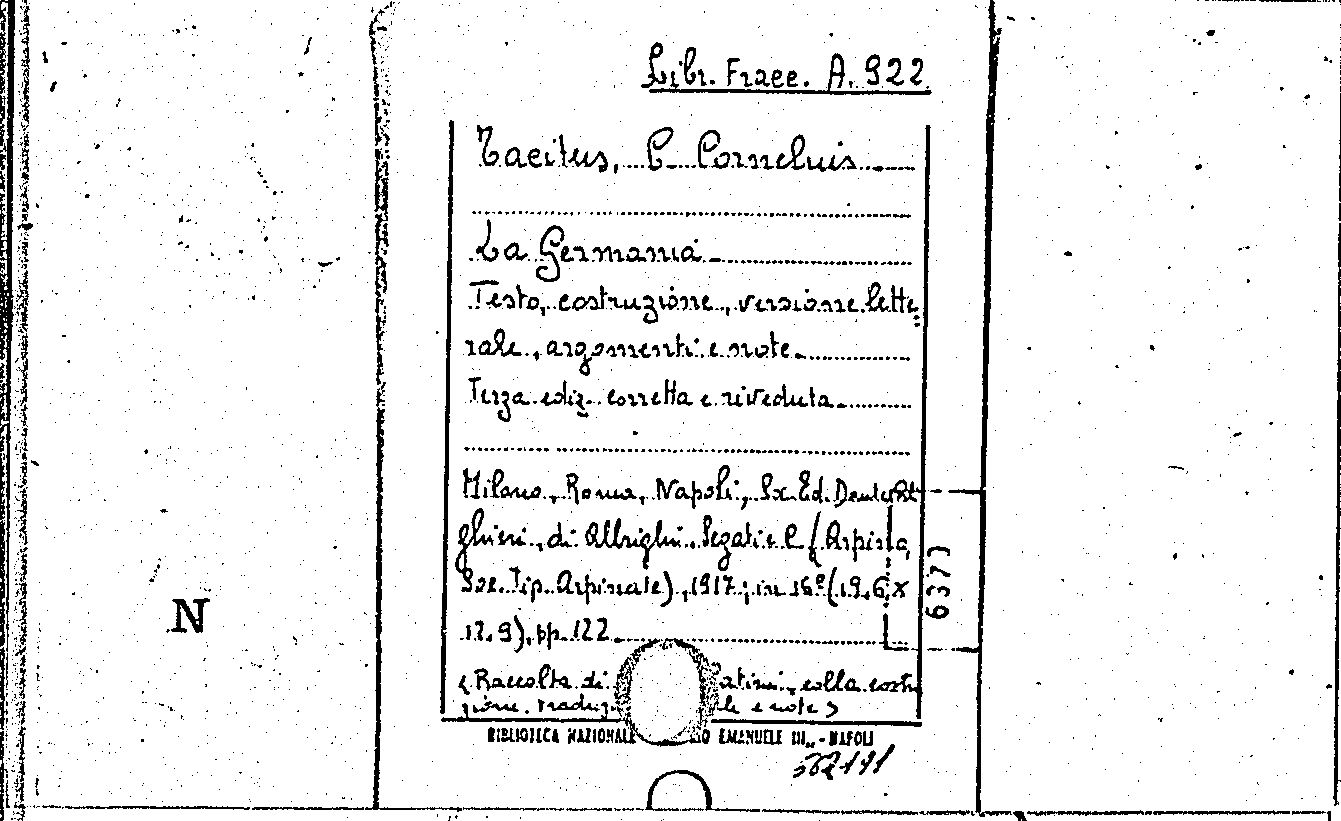 Libr. Fracc. A. 922
Tacitus, C. Cornelius
La Germania
Testo, costruzione, versione lette=
rale, argomenti e note.
Terza ediz. corretta e riveduta
Milano, Roma, Napoli, Soc. Ed. Dante Ali
ghieri, di Albrighi. Segati e C (Arpino,
Soc. Tip. Arpinate), 1917; in 16º (19.6 x
12.9), pp. 122
6377
N
< Raccolta di atini, colla costru
zione. traduz le e note >
BIBLIOTECA NAZIONALE IO EMANUELE III, - NAPOLI